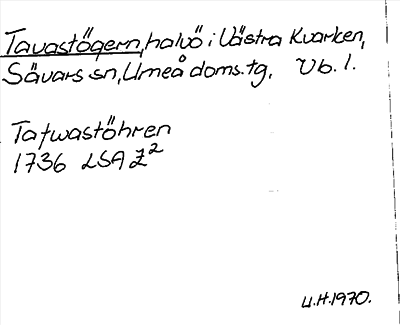 Tavastögern, halvö i Västra Kvarken,
Sävars sn, Umeå doms.tg, Vb. l.
Tafwastöhren
1736 LSA Z²
U.H.1970.